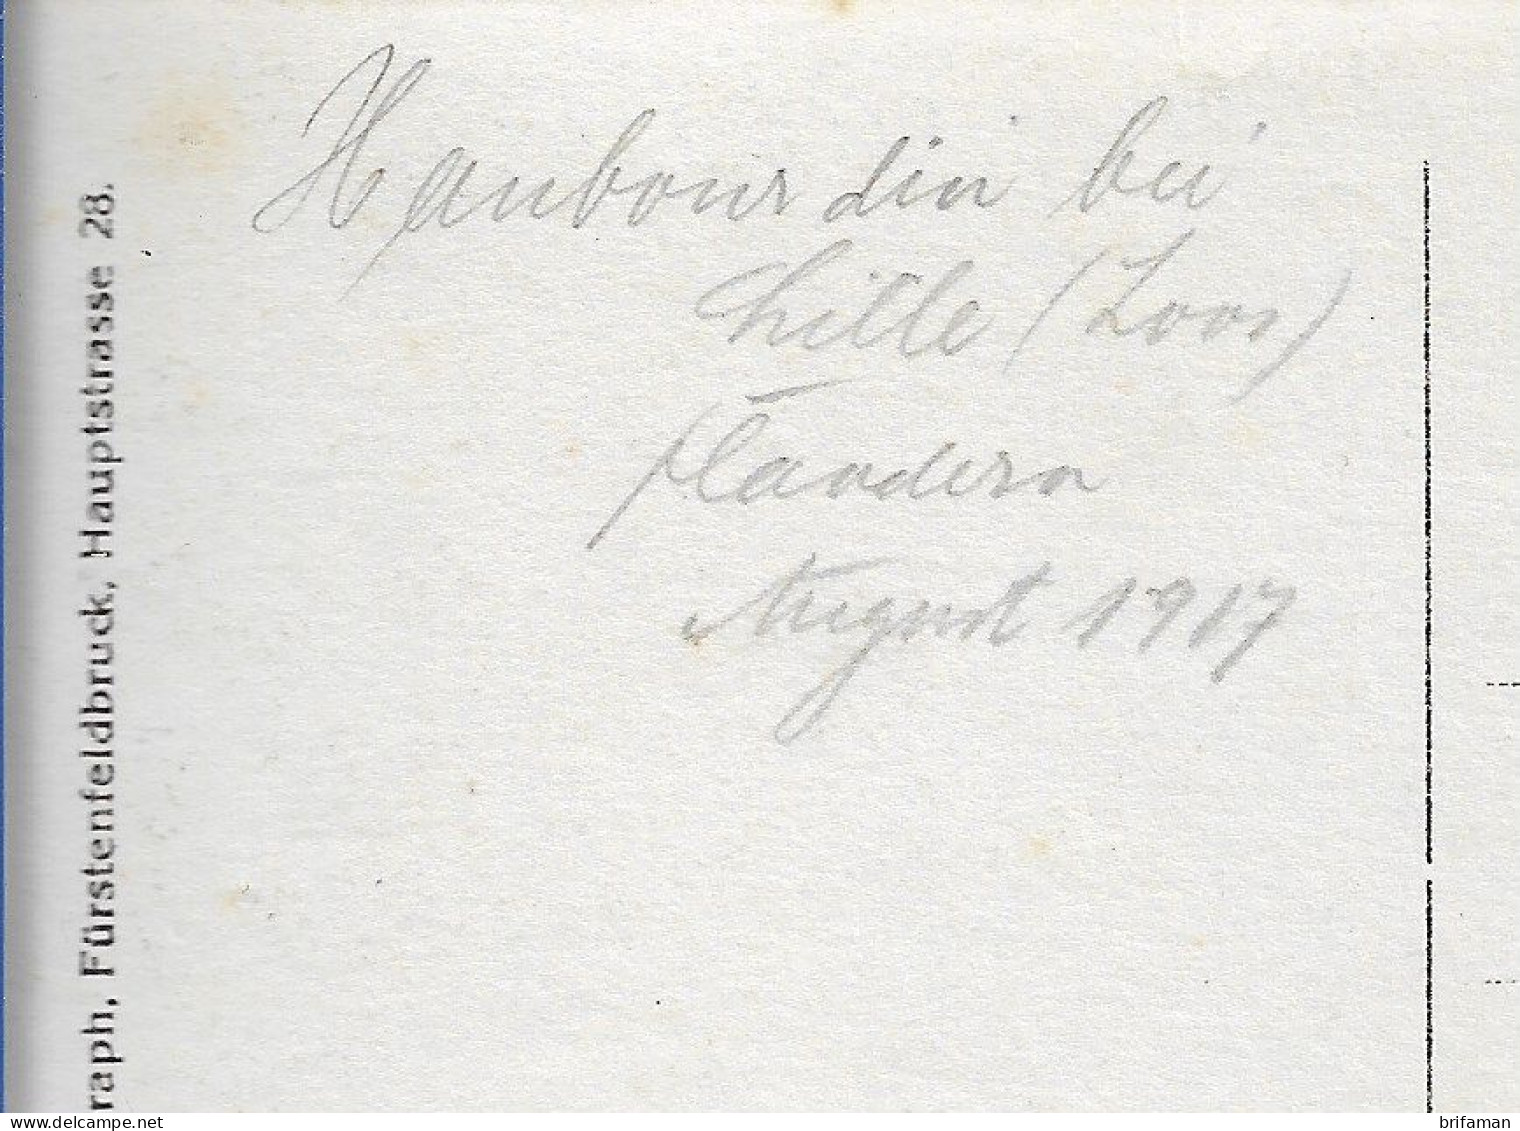 Haubourdin bei
Lille (Loos)
Flandern
August 1917
raph, Fürstenfeldbruck, Hauptstrasse 28.
delcampe.net
brifaman